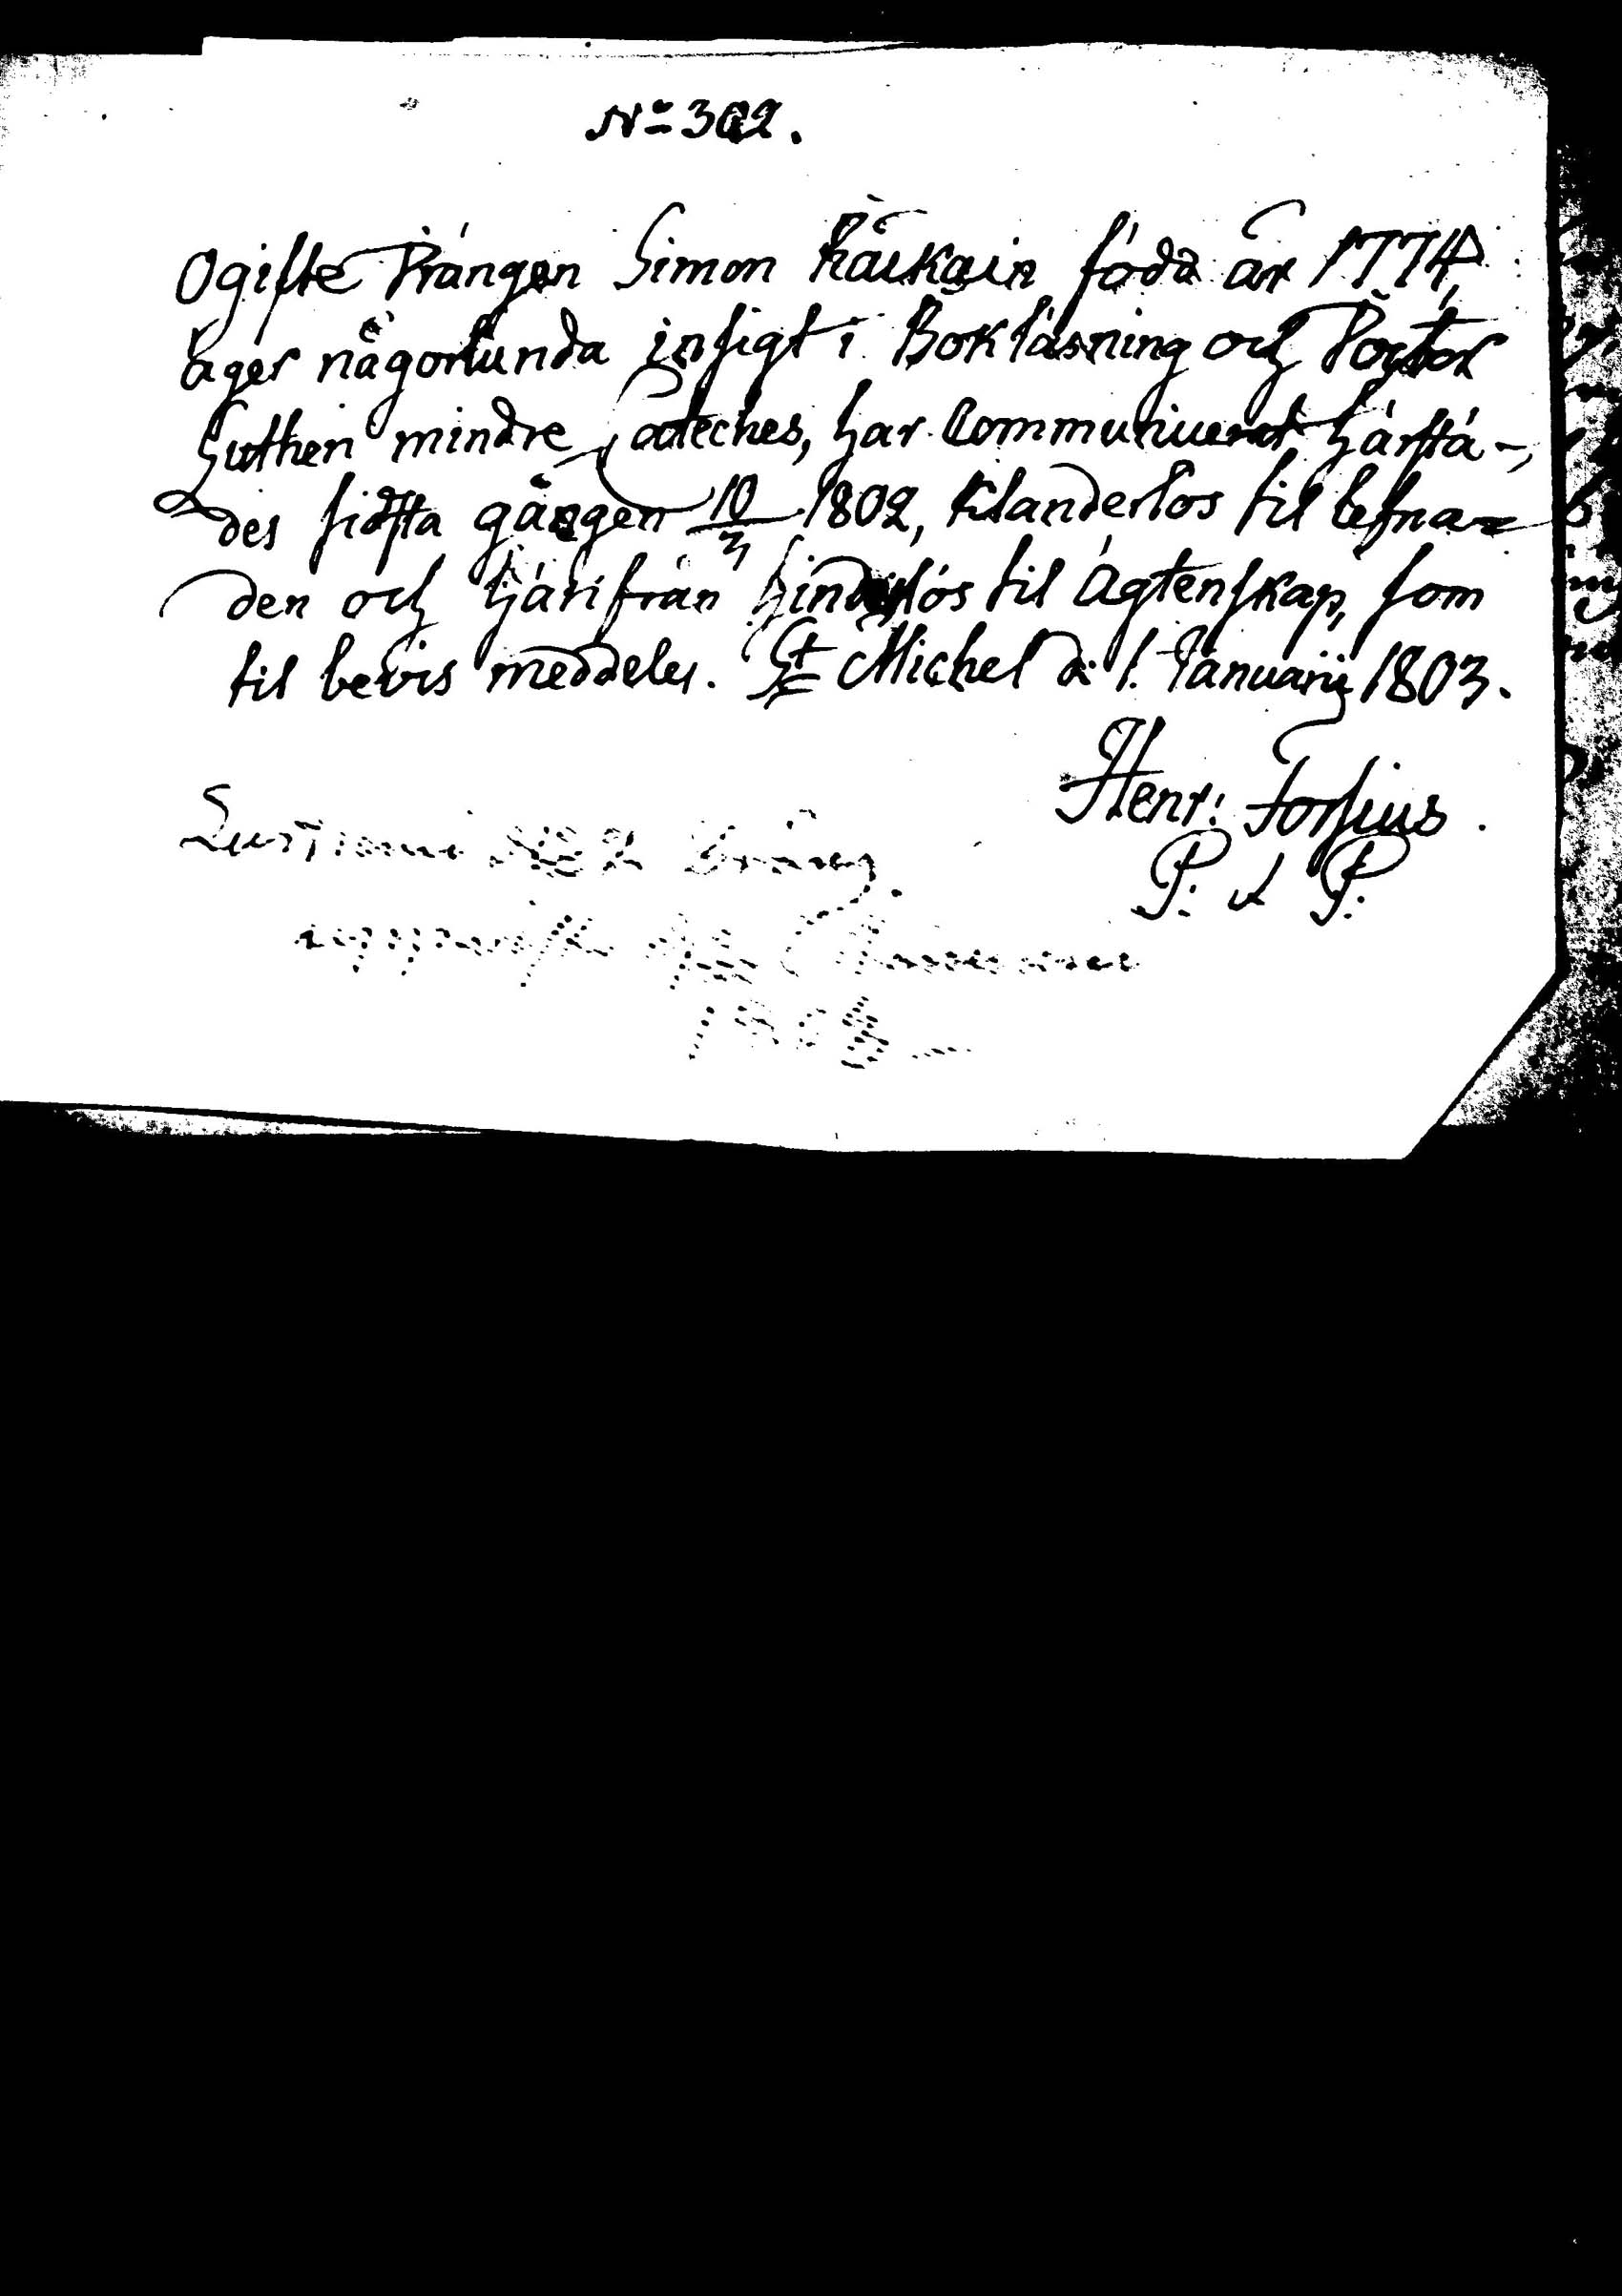 No 302.
Ogifte Drängen Simon Räikäin född år 1774,
äger någorlunda insigt i Bokläsning och Doctor
Lutheri mindre Cateches, har Communicerat härstä-
des sidsta gången 10/3 1802, Klanderlös til lefna-
den och härifrån hinderlös til Ägtenskap, som
til bevis meddeles. St Michel d. 1. Januarij 1803.
Henr: Forsius.
P. & P.
No 2 Dräng
180